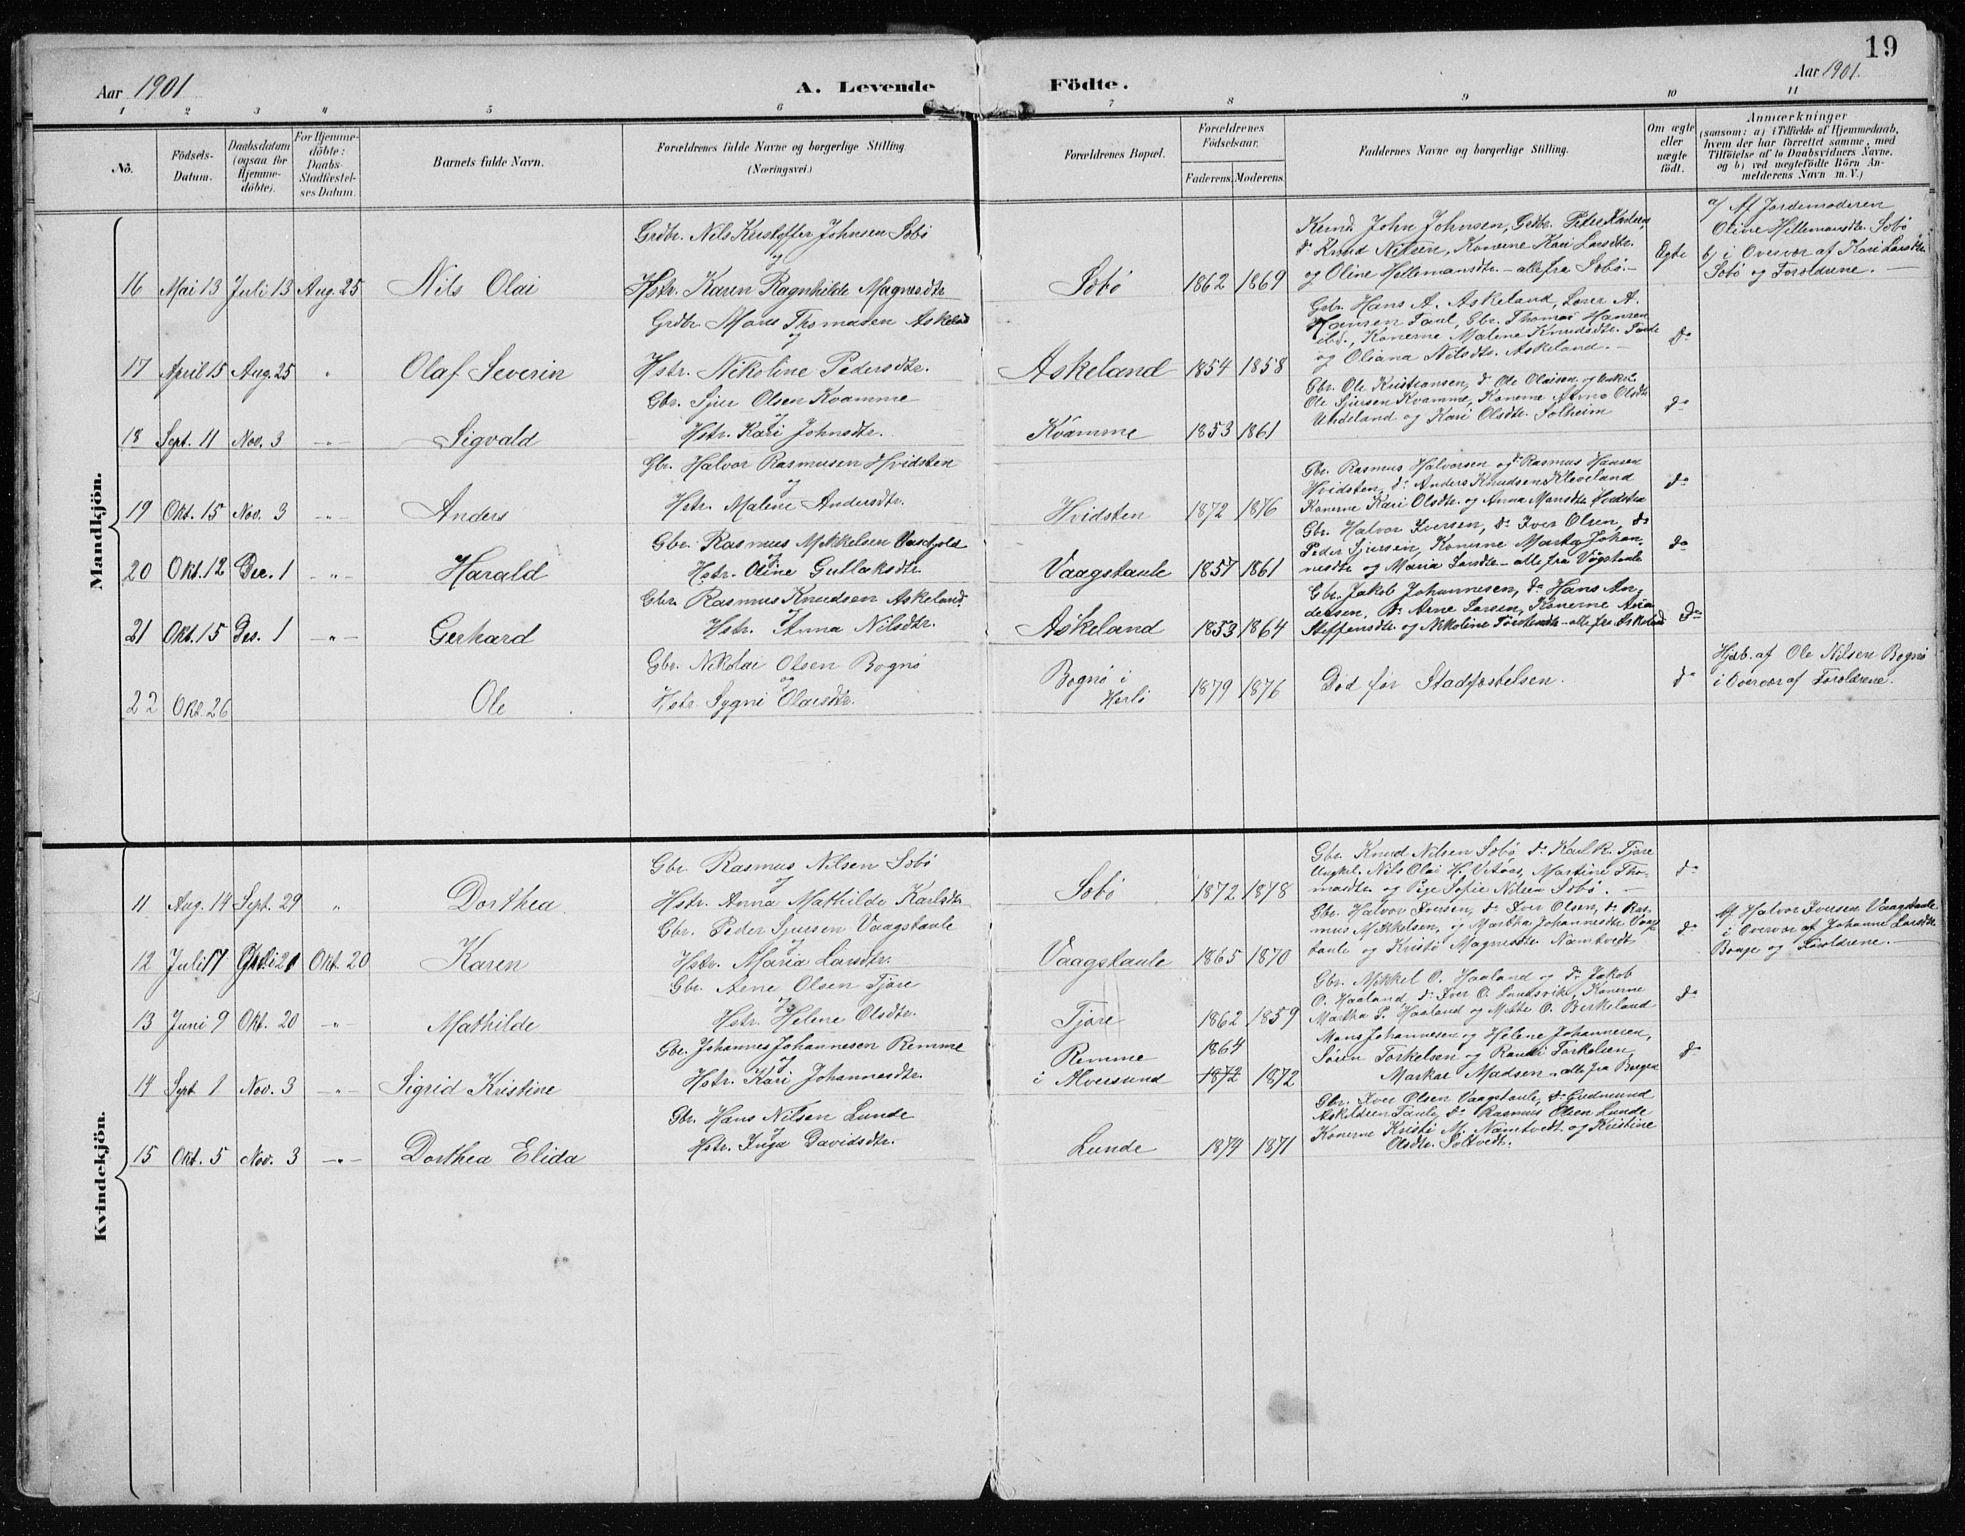 19
Aar 1901 A. Levende Födte. Aar 1901.
1 2 3 4 5 6 7 8 9 10 11
No. Födsels-Datum. Daabsdatum (ogsaa for Hjemme-döbte). For Hjemme-döbte: Daabs-Stadfæstel-ses Datum. Barnets fulde Navn. Forældrenes fulde Navne og borgerlige Stilling (Næringsvei.) Forældrenes Bopæl. Forældrenes Födselsaar. Faderens. Moderens. Faddernes Navne og borgerlige Stilling. Om ægte eller uægte födt. Anmærkninger (saasom: a) i Tilfælde af Hjemmedaab, hvem der har forrettet samme, med Tilföielse af to Daabsvidners Navne, og b) ved uægtefödte Börn An-melderens Navn m. V.)
Mandkjön.
Grdbr. Nils Kristoffer Johnsen Sæbø
og
16 Mai 13 Juli 13 Aug. 25 Nils Olai Hstr. Karen Ragnhilde Magnesdtr Sæbø 1862 1869
Kund John Johnsen, Grdbr. Peter Karlsen,
do Knud Nilsen, Konerne Kari Larsdtr.
og Oline Hellemansdtr. - alle fra Sæbø. -
Ægte
a/ Af Jordemoderen
Oline Hellemansdtr. Sæbø
b) i Overvær af Kari Larsdtr.
Sæbø og Forældrene. -
Grdbr. Mons Thomasen Askeland
og
17 April 15 Aug. 25 " Olaf Severin Hstr. Nikoline Pedersdtr. Askeland 1854 1858
Gbr. Hans A. Askeland, Lærer A.
Hansen Taul, Gbr. Thomas Hansen
ibd., Konerne Malene Knudsdtr.
og Oliana Nilsdtr. Askeland. -
do
Gbr. Sjur Olsen Kvamme
og
18 Sept. 11 Nov. 3 -"- Sigvald Hstr. Kari Johnsdtr. Kvamme 1853 1861
Gbr. Ole Kristiansen, do Ole Olaisen og Unkel.
Ole Sjursen Kvamme, Konerne Anna Olsdtr
Undeland og Kari Olsdtr. Solheim
do
Gbr. Halvor Rasmusen Hvidsten
og
19 Okt. 15 Nov. 3 -"- Anders Hstr. Malene Andersdtr. Hvidsten 1872 1876
Gbr. Rasmus Halvorsen og do Rasmus Hansen
Hvidsten, do Anders Knudsen Kleveland
Konerne Kari Olsdtr. og Anna Monsdtr. Hvidsten
do
Gbr. Rasmus Mikkelsen
og
20 Okt. 12 Dec. 1 -"- Harald Hstr. Oline Gutlaksdtr. Vaagstaule 1857 1861
Gbr. Halvor Iversen, do Iver Olsen, do
Peder Sjursen, Konerne Marta Johan-
nesdtr og Maria Larsdtr - alle fra Vågstaule
do
Gbr. Rasmus Knudsen Askeland.
21 Okt. 15 Des. 1 -"- Gerhard Hstr. Anna Nilsdtr. Askeland 1853 1864
Gbr. Jakob Johannesen, do Hans An-
dersen, do Arne Larsen, Konerne Ana
Steffensdtr og Nikoline - alle fra Askeland
do
Gbr. Nikolai Olsen Bognø
og
22 Okt. 26 Ole Hstr. Sygni Olaisdtr. Bognø i Herlø 1879 1876 Død før Stadfæstelsen. do
Hjdb. af Ole Nilsen Bognø
i Overvær af Forældrene.
Kvindekjön.
Gbr Rasmus Nilsen Sæbø
og
11 Aug. 14 Sept. 29 " Dorthea Hstr. Anna Mathilde Karlsdtr Sæbø 1872 1878
Gbr. Knud Nilsen Sæbø do Karl K. Tjore
Ungkl. Nils Olai H. Vitøas, Martine Tho-
masdtr og Pige Sofie Nilsen Sæbø. -
do
Gbr. Peder Sjursen Vaagstaule
og
12 Juli 17 Juli 21 Okt. 20 Karen Hstr. Maria Larsdtr. Vaagstaule 1865 1870
Gbr. Halvor Iversen, do Iver Olsen, do Ras-
mus Mikkelsen, og Martha Johannesdtr Vaag-
taule og Kristi Magnesdtr. Namtvedt
do
Af Halvor Iversen Vaagstaule
i Overvær af Johanne Larsdtr.
Bouge og Forældrene. -
Gbr. Arne Olsen Tjore
og
13 Juni 9 Okt. 20 -"- Mathilde Hstr. Helene Olsdtr. Tjore 1862 1859
Gbr. Mikkel O. Haaland og do Jakob
O. Haaland, do Iver O. Lundsvik, Konerne
Martha S. Haaland og Mette O. Birkeland
do
Gbr. Johannes Johannesen Remme
og
14 Sept. 1 Nov. 3 -"- Sigrid Kristine Hstr. Kari Johannesdtr. Remme i Alversund 1864 1872 1872
Mons Johannesen og Helene Johannesen,
Søren Torkelsen og Randi Torkelsen,
Markar Madsen - alle fra Bergen
do
Gbr. Hans Nilsen Lunde
og
15 Okt. 5 Nov. 3 -"- Dorthea Elida Hstr. Inga Davidsdtr. Lunde 1874 1871
Gbr. Iver Olsen Vaagstaule, do Gudmund
Askildsen Taule, do Rasmus Olsen Lunde
Konerne Kristi M. Namtvedt og Kristine
Olsdtr. Soltvedt.